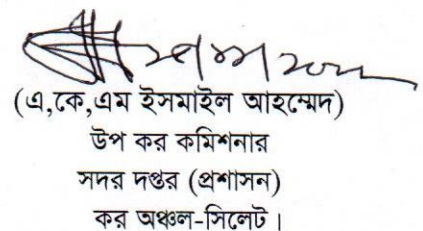 (এ,কে,এম ইসমাইল আহম্মেদ)
উপ কর কমিশনার
সদর দপ্তর (প্রশাসন)
কর অঞ্চল-সিলেট।